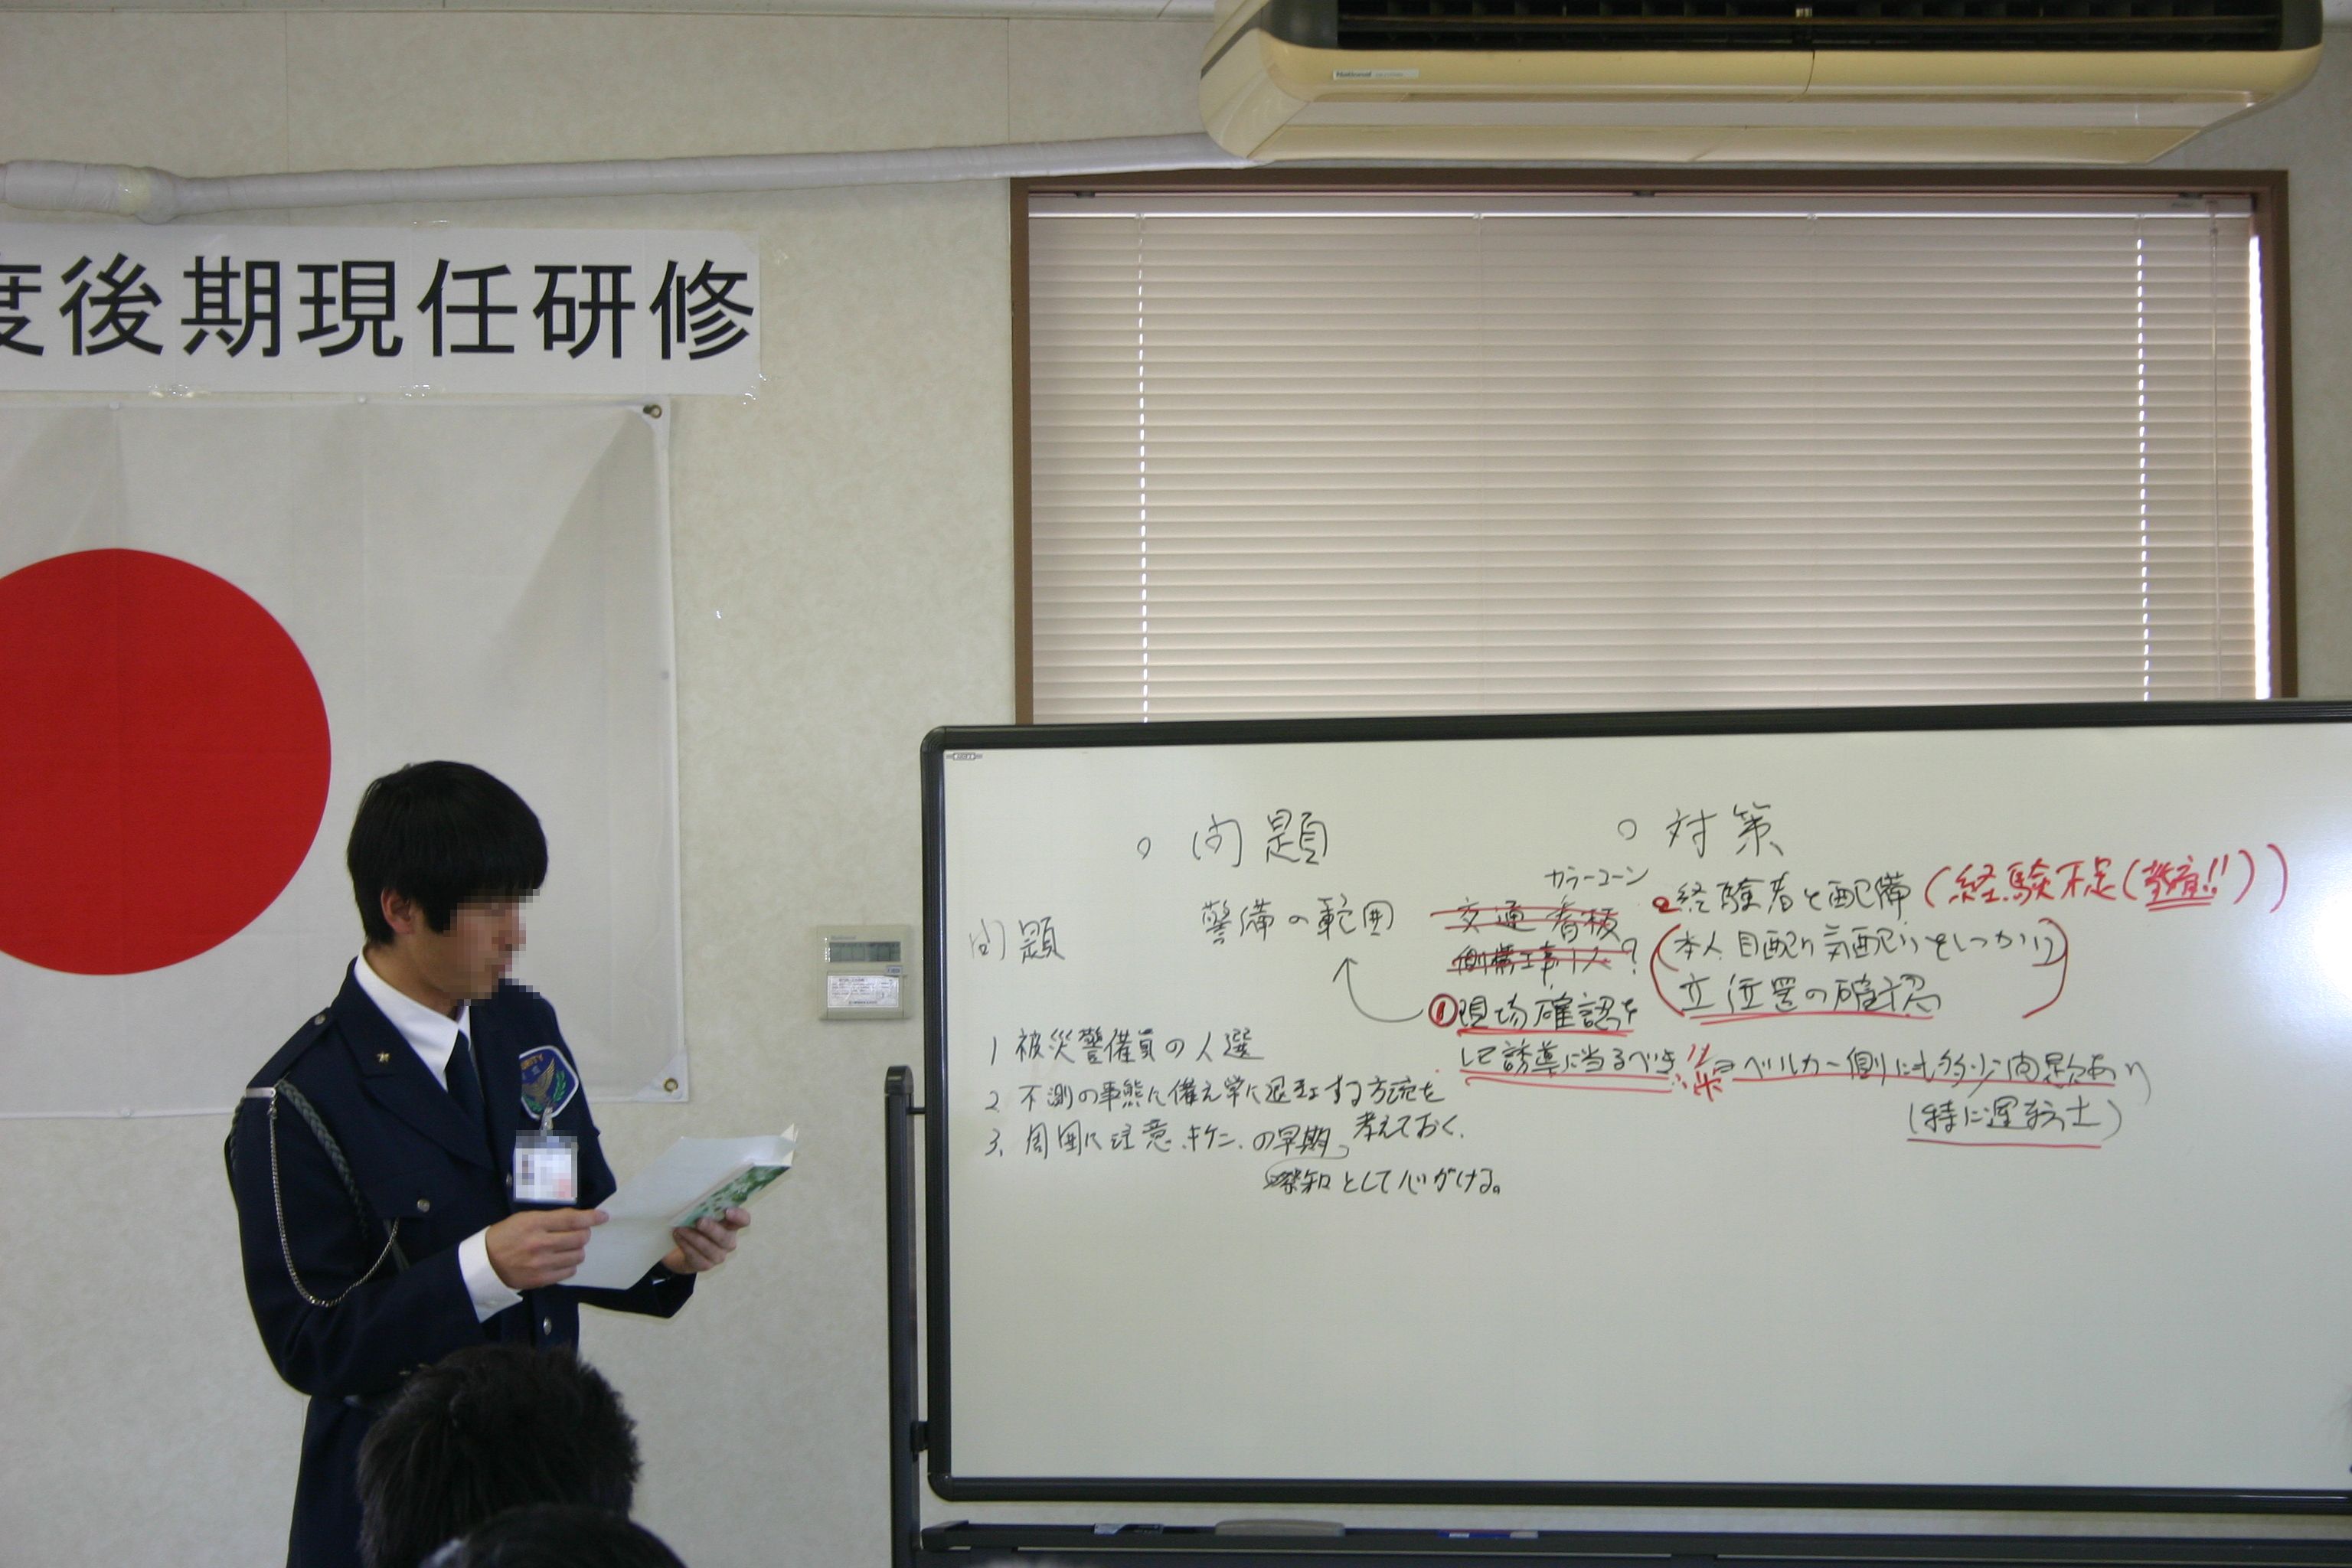 度後期現任研修
National
SECURITY
○ 問題
○ 対策
問題
警備の範囲
カラーコーン
交通看板
側溝工事1人?
①現場確認を
して誘導に当るべき!!
②経験者を配備(経験不足(教育!!))
(本人 目配り気配りをしっかり)
立位置の確認
※⇒ベルカー側にも多少問題あり
(特に運転士)
1 被災警備員の人選
2 不測の事態に備え常に退避する方法を
考えておく.
3. 周囲に注意.キケン.の早期
察知として心がける。